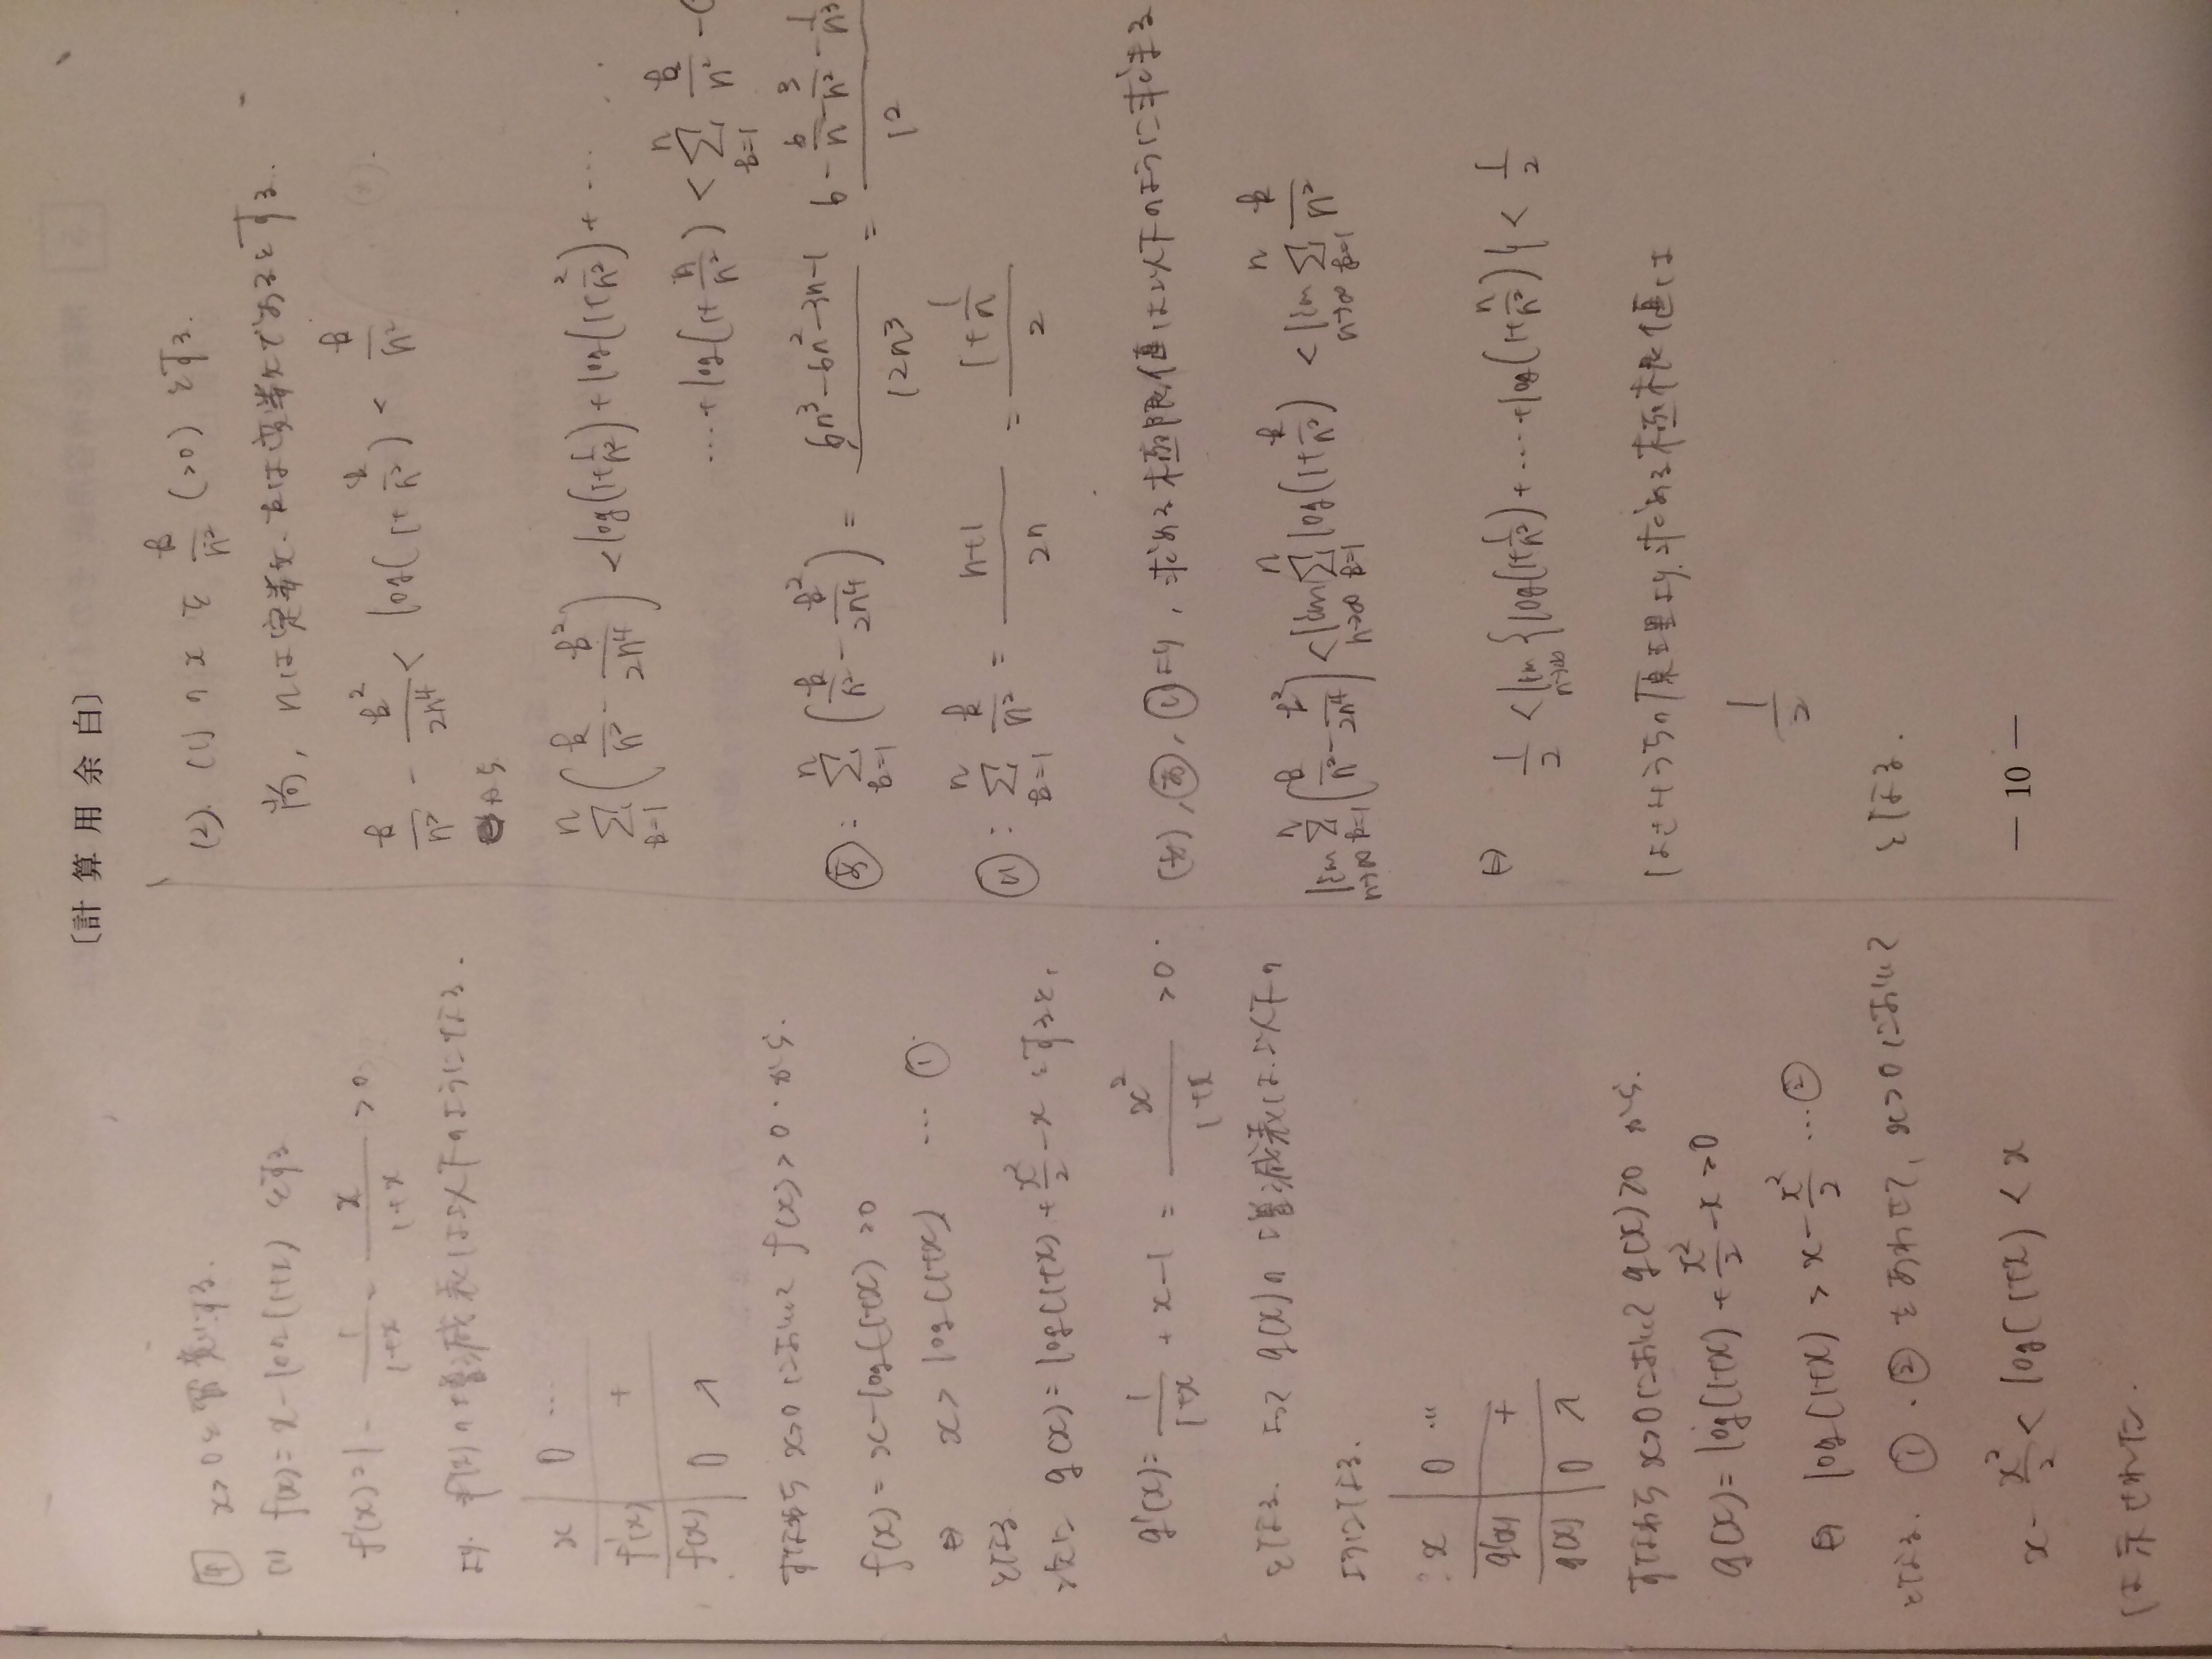 〔計 算 用 余 白〕
4 x>0と定義する.
(1) f(x)=x-log(1+x) とする
f'(x)=1-1/(1+x)=x/(1+x)>0
より. f(x)の増減表は以下のようになる.
x 0 …
f'(x) +
f(x) 0 ↗
すなわち x>0 において f(x)>0. から.
f(x)=x-log(1+x)>0
⇔ x>log(1+x) … ①
となる
次に g(x)=log(1+x)+x²/2-x とすると,
g'(x)=1/(1+x)+x-1=x²/(1+x)>0.
となる. よって g(x)の増減表は以下の
ようになる.
x 0 …
g'(x) +
g(x) 0 ↗
すなわち x>0において g(x)>0 から.
g(x)=log(1+x)+x²/2-x>0
⇔ log(1+x)>x-x²/2 …②
となる. ①.②をあわせて, x>0において
x-x²/2<log(1+x)<x
は示された.
(2). (1)のxをk/n²(>0)とする.
尚, nは定数. kは変数であるとする.
k/n²-k²/2n⁴<log(1+k/n²)<k/n²
から.
nΣk=1(k/n²-k²/2n⁴)<log(1+1/n²)+log(1+2/n²)+…
…+log(1+n/n²)<nΣk=1 k/n²
あ: nΣk=1(k/n²-k²/2n⁴)=(6n³-6n²-3n-1)/12n³=(6-6/n-3/n²-1/n³)/12
い: nΣk=1 k/n²=(n+1)/2n=(1+1/n)/2
あ, いより, 求める極限値は以下のように求まる
lim n→∞ nΣk=1(k/n²-k²/2n⁴)<lim n→∞ nΣk=1 log(1+k/n²)<lim n→∞ nΣk=1 k/n²
⇔ 1/2<lim n→∞{log(1+1/n²)+…+log(1+n/n²)}<1/2
はさみうちの原理より. 求める極限値は
1/2
となる.
— 10 —